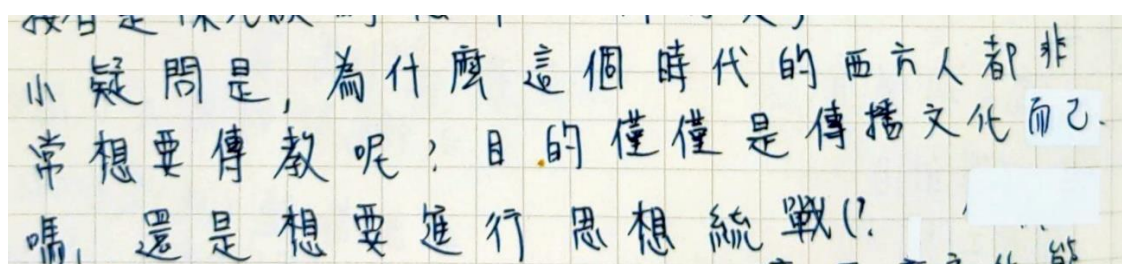 小疑問是，為什麼這個時代的西方人都非
常想要傳教呢？目的僅僅是傳播文化而已
嗎，還是想要進行思想統戰(?